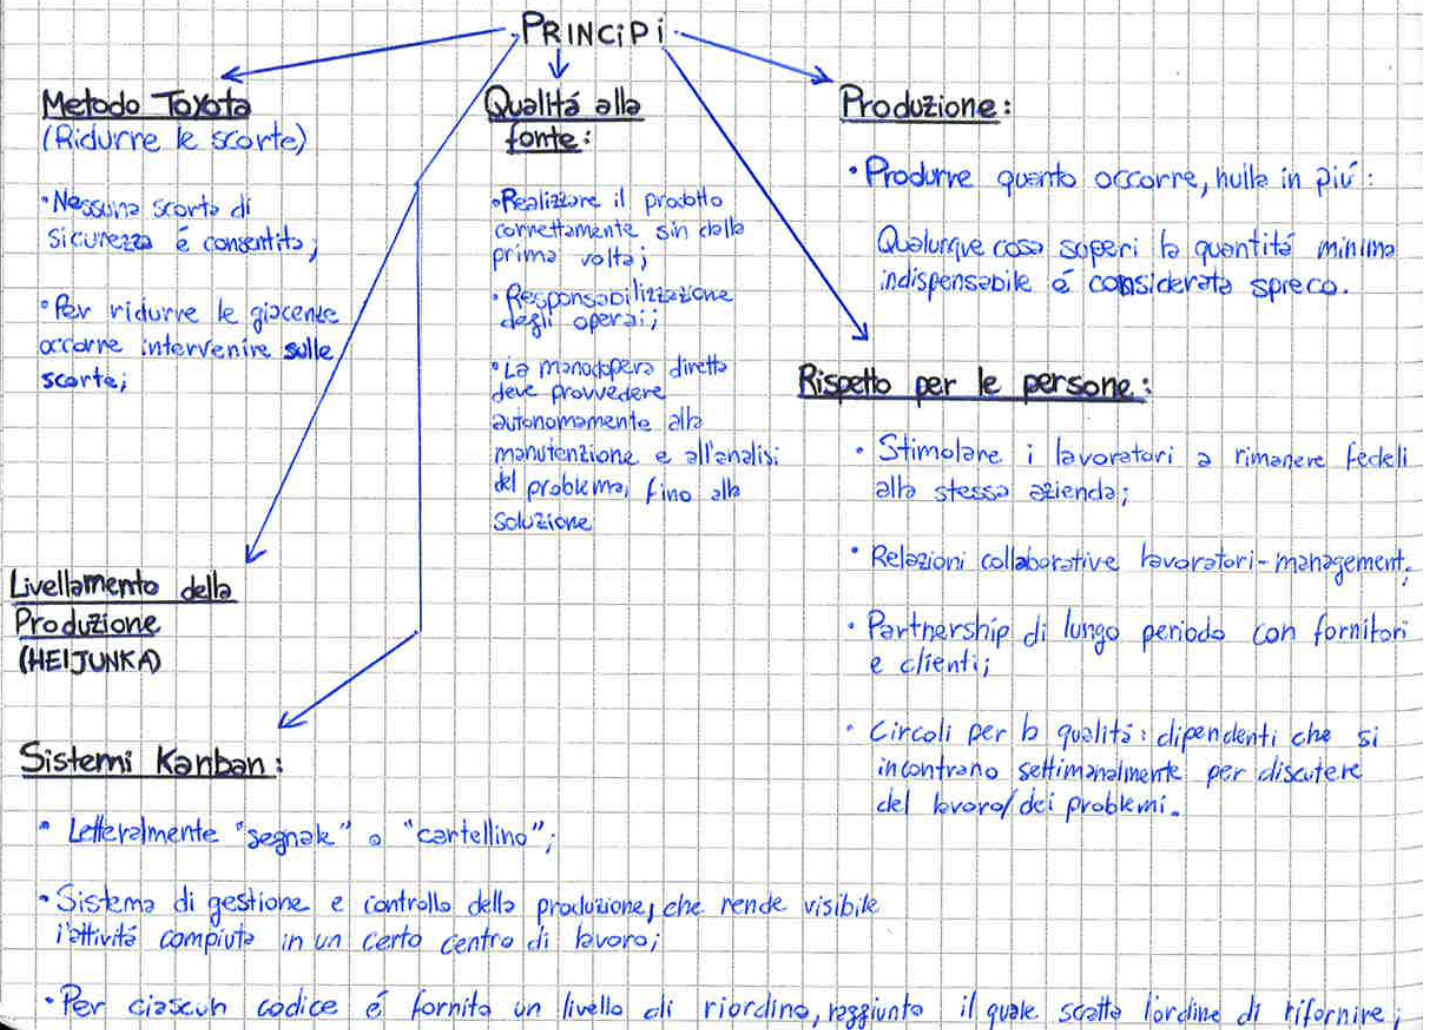 PRINCiPi
Metodo Toyota
(Ridurre le scorte)
• Nessuna scorta di
sicurezza é consentita;
• Per ridurre le giacenze
occorre intervenire sulle
scorte;
Qualitá alla
fonte:
• Realizzare il prodotto
correttamente sin dalla
prima volta;
• Responsabilizzazione
degli operai;
• La manodopera diretta
deve provvedere
autonomamente alla
manutenzione e all'analisi
del problema, fino alla
soluzione
Produzione:
• Produrre quanto occorre, nulla in piú:
Qualunque cosa superi la quantitá minima
indispensabile é considerata spreco.
Rispetto per le persone:
• Stimolare i lavoratori a rimanere fedeli
alla stessa azienda;
• Relazioni collaborative lavoratori-management;
• Partnership di lungo periodo con fornitori
e clienti;
• Circoli per la qualitá: dipendenti che si
incontrano settimanalmente per discutere
del lavoro/dei problemi.
Livellamento della
Produzione
(HEIJUNKA)
Sistemi Kanban:
• Letteralmente "segnale" o "cartellino";
• Sistema di gestione e controllo della produzione, che rende visibile
l'attivitá compiuta in un certo centro di lavoro;
• Per ciascun codice é fornito un livello di riordino, raggiunto il quale scatta l'ordine di rifornire;